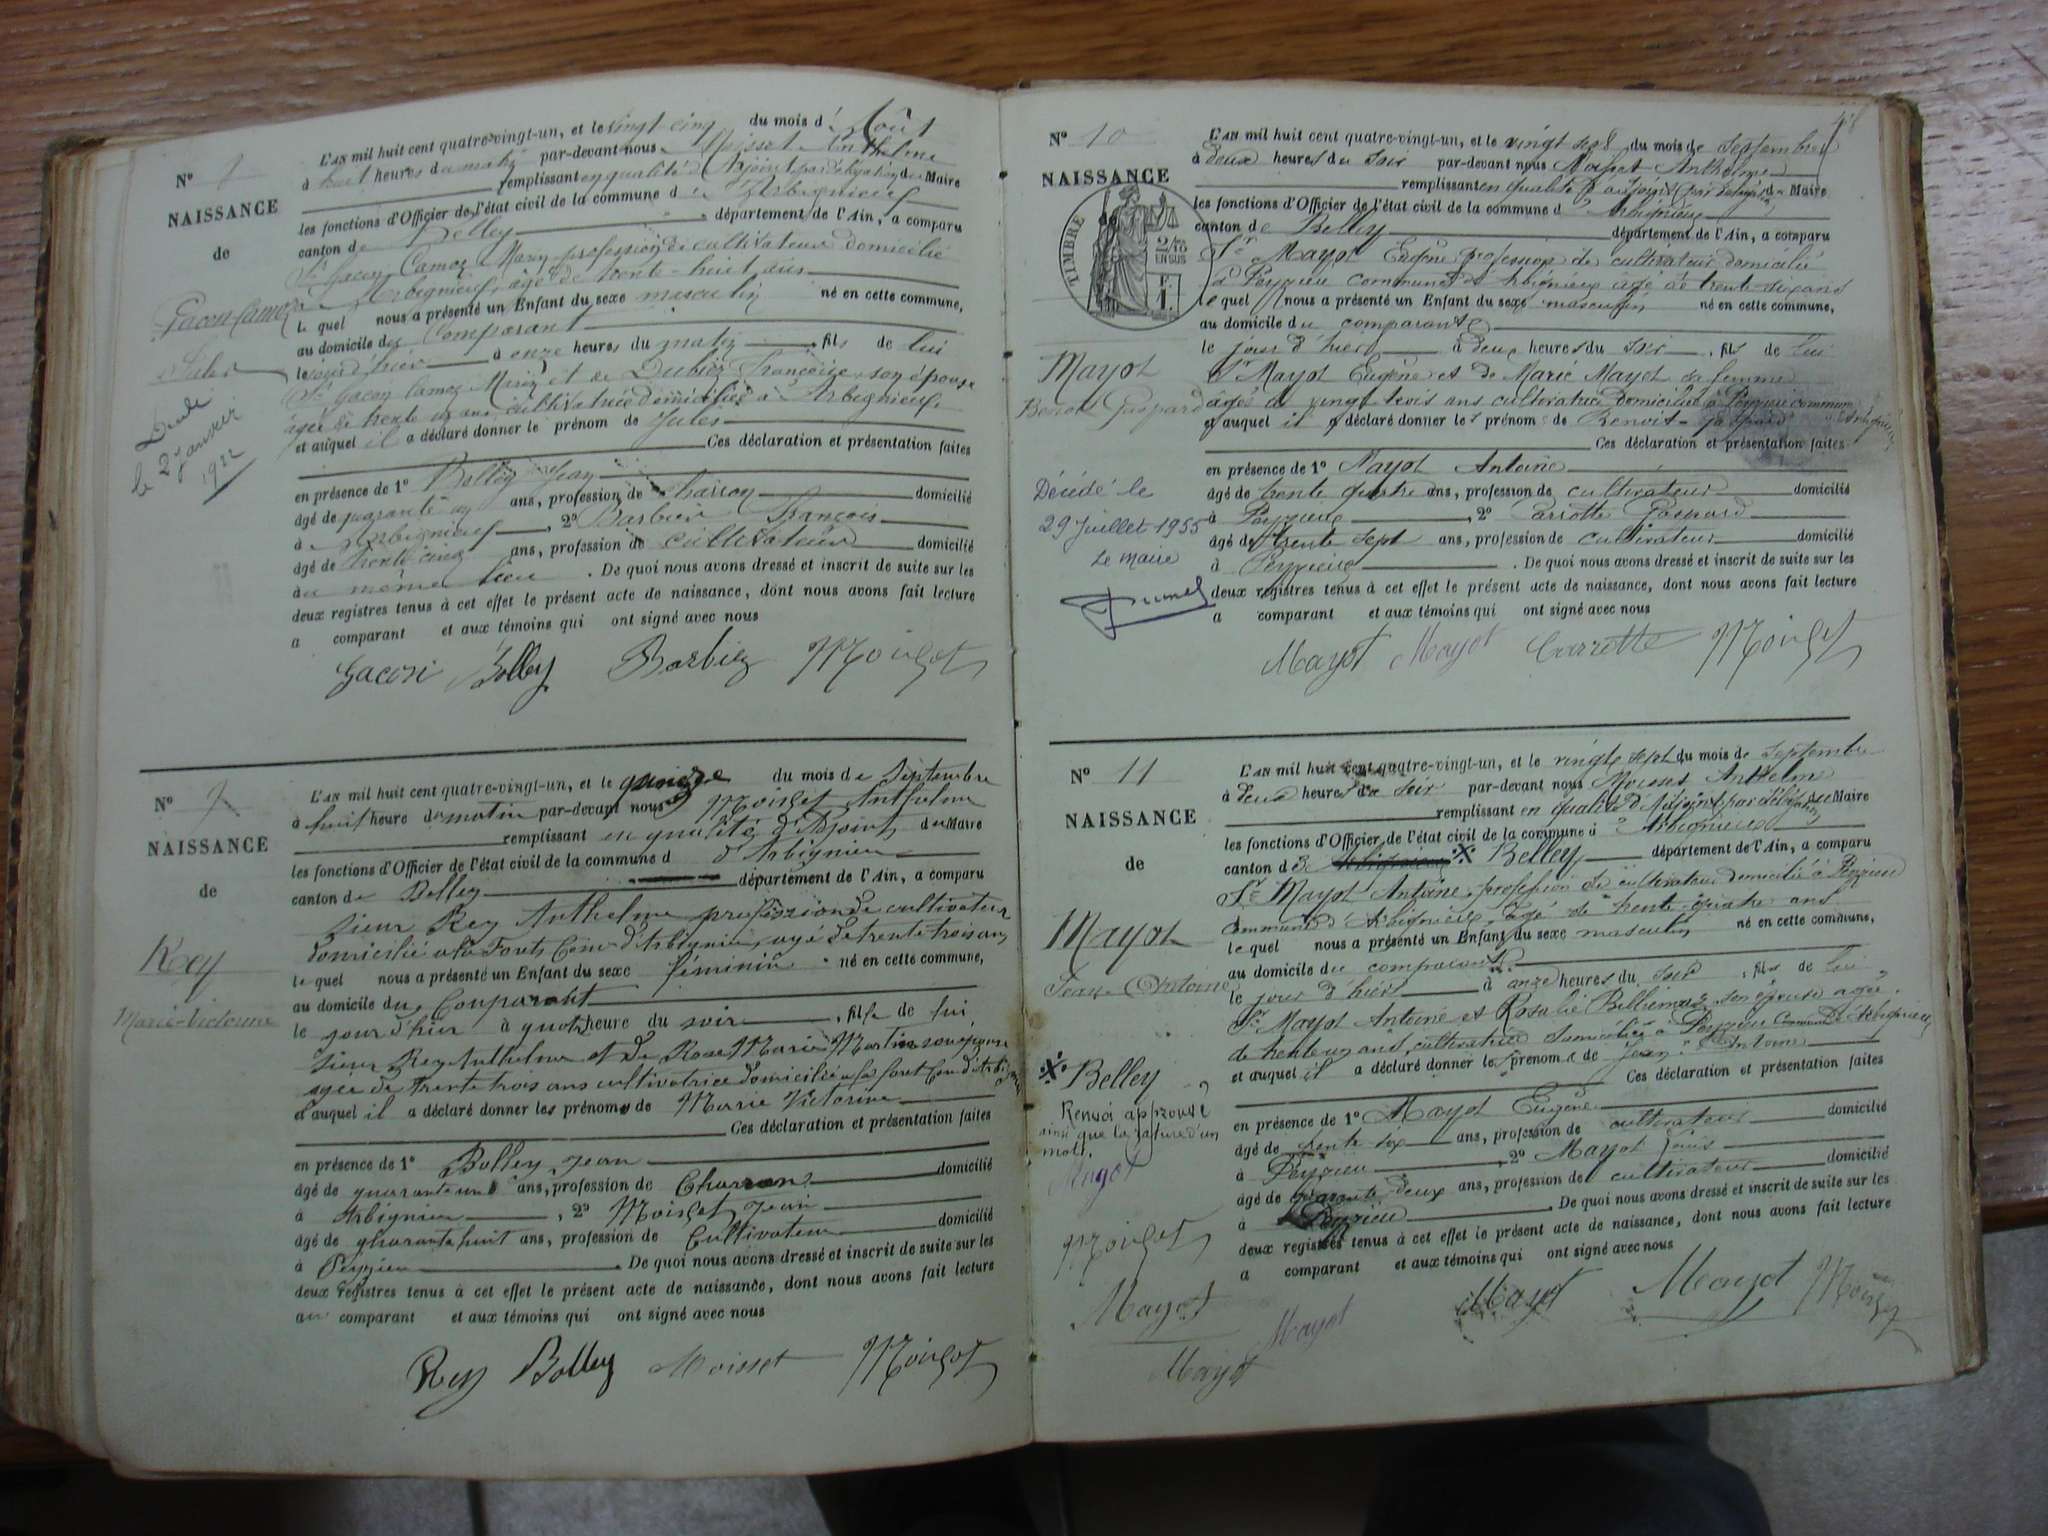 N°
NAISSANCE
de
Gacon Camoz
Jules
Décédé
le 2 janvier
1922
L'AN mil huit cent quatre-vingt-un, et le vingt-cinq du mois d'Août
à huit heures du matin par-devant nous Moisset Anthelme
remplissant en qualité d'Adjoint par délégation du Maire
les fonctions d'Officier de l'état civil de la commune d'Arbignieu
canton de Belley département de l'Ain, a comparu
Sr Gacon Camoz Marin profession de cultivateur domicilié
à Arbignieu, âgé de trente-huit ans
le quel nous a présenté un Enfant du sexe masculin né en cette commune,
au domicile du Comparant
le jour d'hier à onze heures du matin, fils de lui
Sr Gacon Camoz Marin et de Dubiez Françoise son épouse
âgée de trente un ans cultivatrice domiciliée à Arbignieu,
et auquel il a déclaré donner le prénom de Jules
Ces déclaration et présentation faites
en présence de 1° Bolley Jean
âgé de quarante un ans, profession de charron domicilié
à Arbignieu, 2° Barbier François
âgé de trente cinq ans, profession de cultivateur domicilié
au même lieu. De quoi nous avons dressé et inscrit de suite sur les
deux registres tenus à cet effet le présent acte de naissance, dont nous avons fait lecture
a comparant et aux témoins qui ont signé avec nous
Gacon Bolley Barbier Moisset
N°
NAISSANCE
de
Rey
Marie-Victorine
L'AN mil huit cent quatre-vingt-un, et le quinze du mois de Septembre
à huit heure du matin par-devant nous Moisset Anthelme
remplissant en qualité d'Adjoint du Maire
les fonctions d'Officier de l'état civil de la commune d d'Arbignieu
canton de Belley département de l'Ain, a comparu
sieur Rey Anthelme profession de cultivateur
domicilié à la Forêt Com d'Arbignieu, âgé de trente trois ans
le quel nous a présenté un Enfant du sexe féminin né en cette commune,
au domicile du Comparant
le jour d'hier à quatre heure du soir, fille de lui
sieur Rey Anthelme et de Rose Marie Martin son épouse
agée de trente trois ans cultivatrice domiciliée a la foret Com d'Arbignieu
et auquel il a déclaré donner les prénoms de Marie Victorine
Ces déclaration et présentation faites
en présence de 1° Bolley Jean
âgé de quarante un ans, profession de Charron domicilié
à Arbignieu, 2° Moisset Jean
âgé de quarante huit ans, profession de Cultivateur domicilié
à Peyzieu. De quoi nous avons dressé et inscrit de suite sur les
deux registres tenus à cet effet le présent acte de naissance, dont nous avons fait lecture
au comparant et aux témoins qui ont signé avec nous
Rey Bolley Moisset Moisset
N° 10
NAISSANCE
TIMBRE
2/10 EN SUS
Mayot
Benoit Gaspard
Décédé le
29 Juillet 1955
Le Maire
L'AN mil huit cent quatre-vingt-un, et le vingt sept du mois de Septembre
à deux heures du soir par-devant nous Moisset Anthelme
remplissant en qualité d'adjoint par délégation du Maire
les fonctions d'Officier de l'état civil de la commune d'Arbignieu
canton de Belley département de l'Ain, a comparu
Sr Mayot Eugène profession de cultivateur domicilié
à Peyzieu commune d'Arbignieu âgé de trente six ans
le quel nous a présenté un Enfant du sexe masculin né en cette commune,
au domicile du comparant
le jour d'hier à deux heures du soir, fils de lui
Sr Mayot Eugène et de Marie Mayot sa femme
âgée de vingt trois ans cultivatrice domiciliée à Peyzieu commune d'Arbignieu
et auquel il a déclaré donner les prénoms de Benoit-Gaspard
Ces déclaration et présentation faites
en présence de 1° Mayot Antoine
âgé de trente quatre ans, profession de cultivateur domicilié
à Peyzieu, 2° Carrotte Gaspard
âgé de trente sept ans, profession de cultivateur domicilié
à Peyzieu. De quoi nous avons dressé et inscrit de suite sur les
deux registres tenus à cet effet le présent acte de naissance, dont nous avons fait lecture
a comparant et aux témoins qui ont signé avec nous
Mayot Mayot Carrotte Moisset
N° 11
NAISSANCE
de
Mayot
Jean-Antoine
Belley
Renvoi approuvé
ainsi que la rature d'un
mot.
Mayot
Moisset
Mayot
Mayot
Mayot
L'AN mil huit cent quatre-vingt-un, et le vingt sept du mois de Septembre
à deux heures du soir par-devant nous Moisset Anthelme
remplissant en qualité d'Adjoint par délégation du Maire
les fonctions d'Officier de l'état civil de la commune d'Arbignieu
canton de Belley département de l'Ain, a comparu
Sr Mayot Antoine, profession de cultivateur domicilié à Peyzieu
Commune d'Arbignieu, âgé de trente quatre ans
le quel nous a présenté un Enfant du sexe masculin né en cette commune,
au domicile du comparant
le jour d'hier à onze heures du soir, fils de lui
Sr Mayot Antoine et Rosalie Billiemaz son épouse agée
de trente un ans, cultivatrice domiciliée à Peyzieu Commune d'Arbignieu
et auquel il a déclaré donner les prénoms de Jean Antoine
Ces déclaration et présentation faites
en présence de 1° Mayot Eugène
âgé de trente six ans, profession de cultivateur domicilié
à Peyzieu, 2° Mayot Louis
âgé de quarante deux ans, profession de cultivateur domicilié
à Peyzieu. De quoi nous avons dressé et inscrit de suite sur les
deux registres tenus à cet effet le présent acte de naissance, dont nous avons fait lecture
a comparant et aux témoins qui ont signé avec nous
Mayot Mayot Moisset